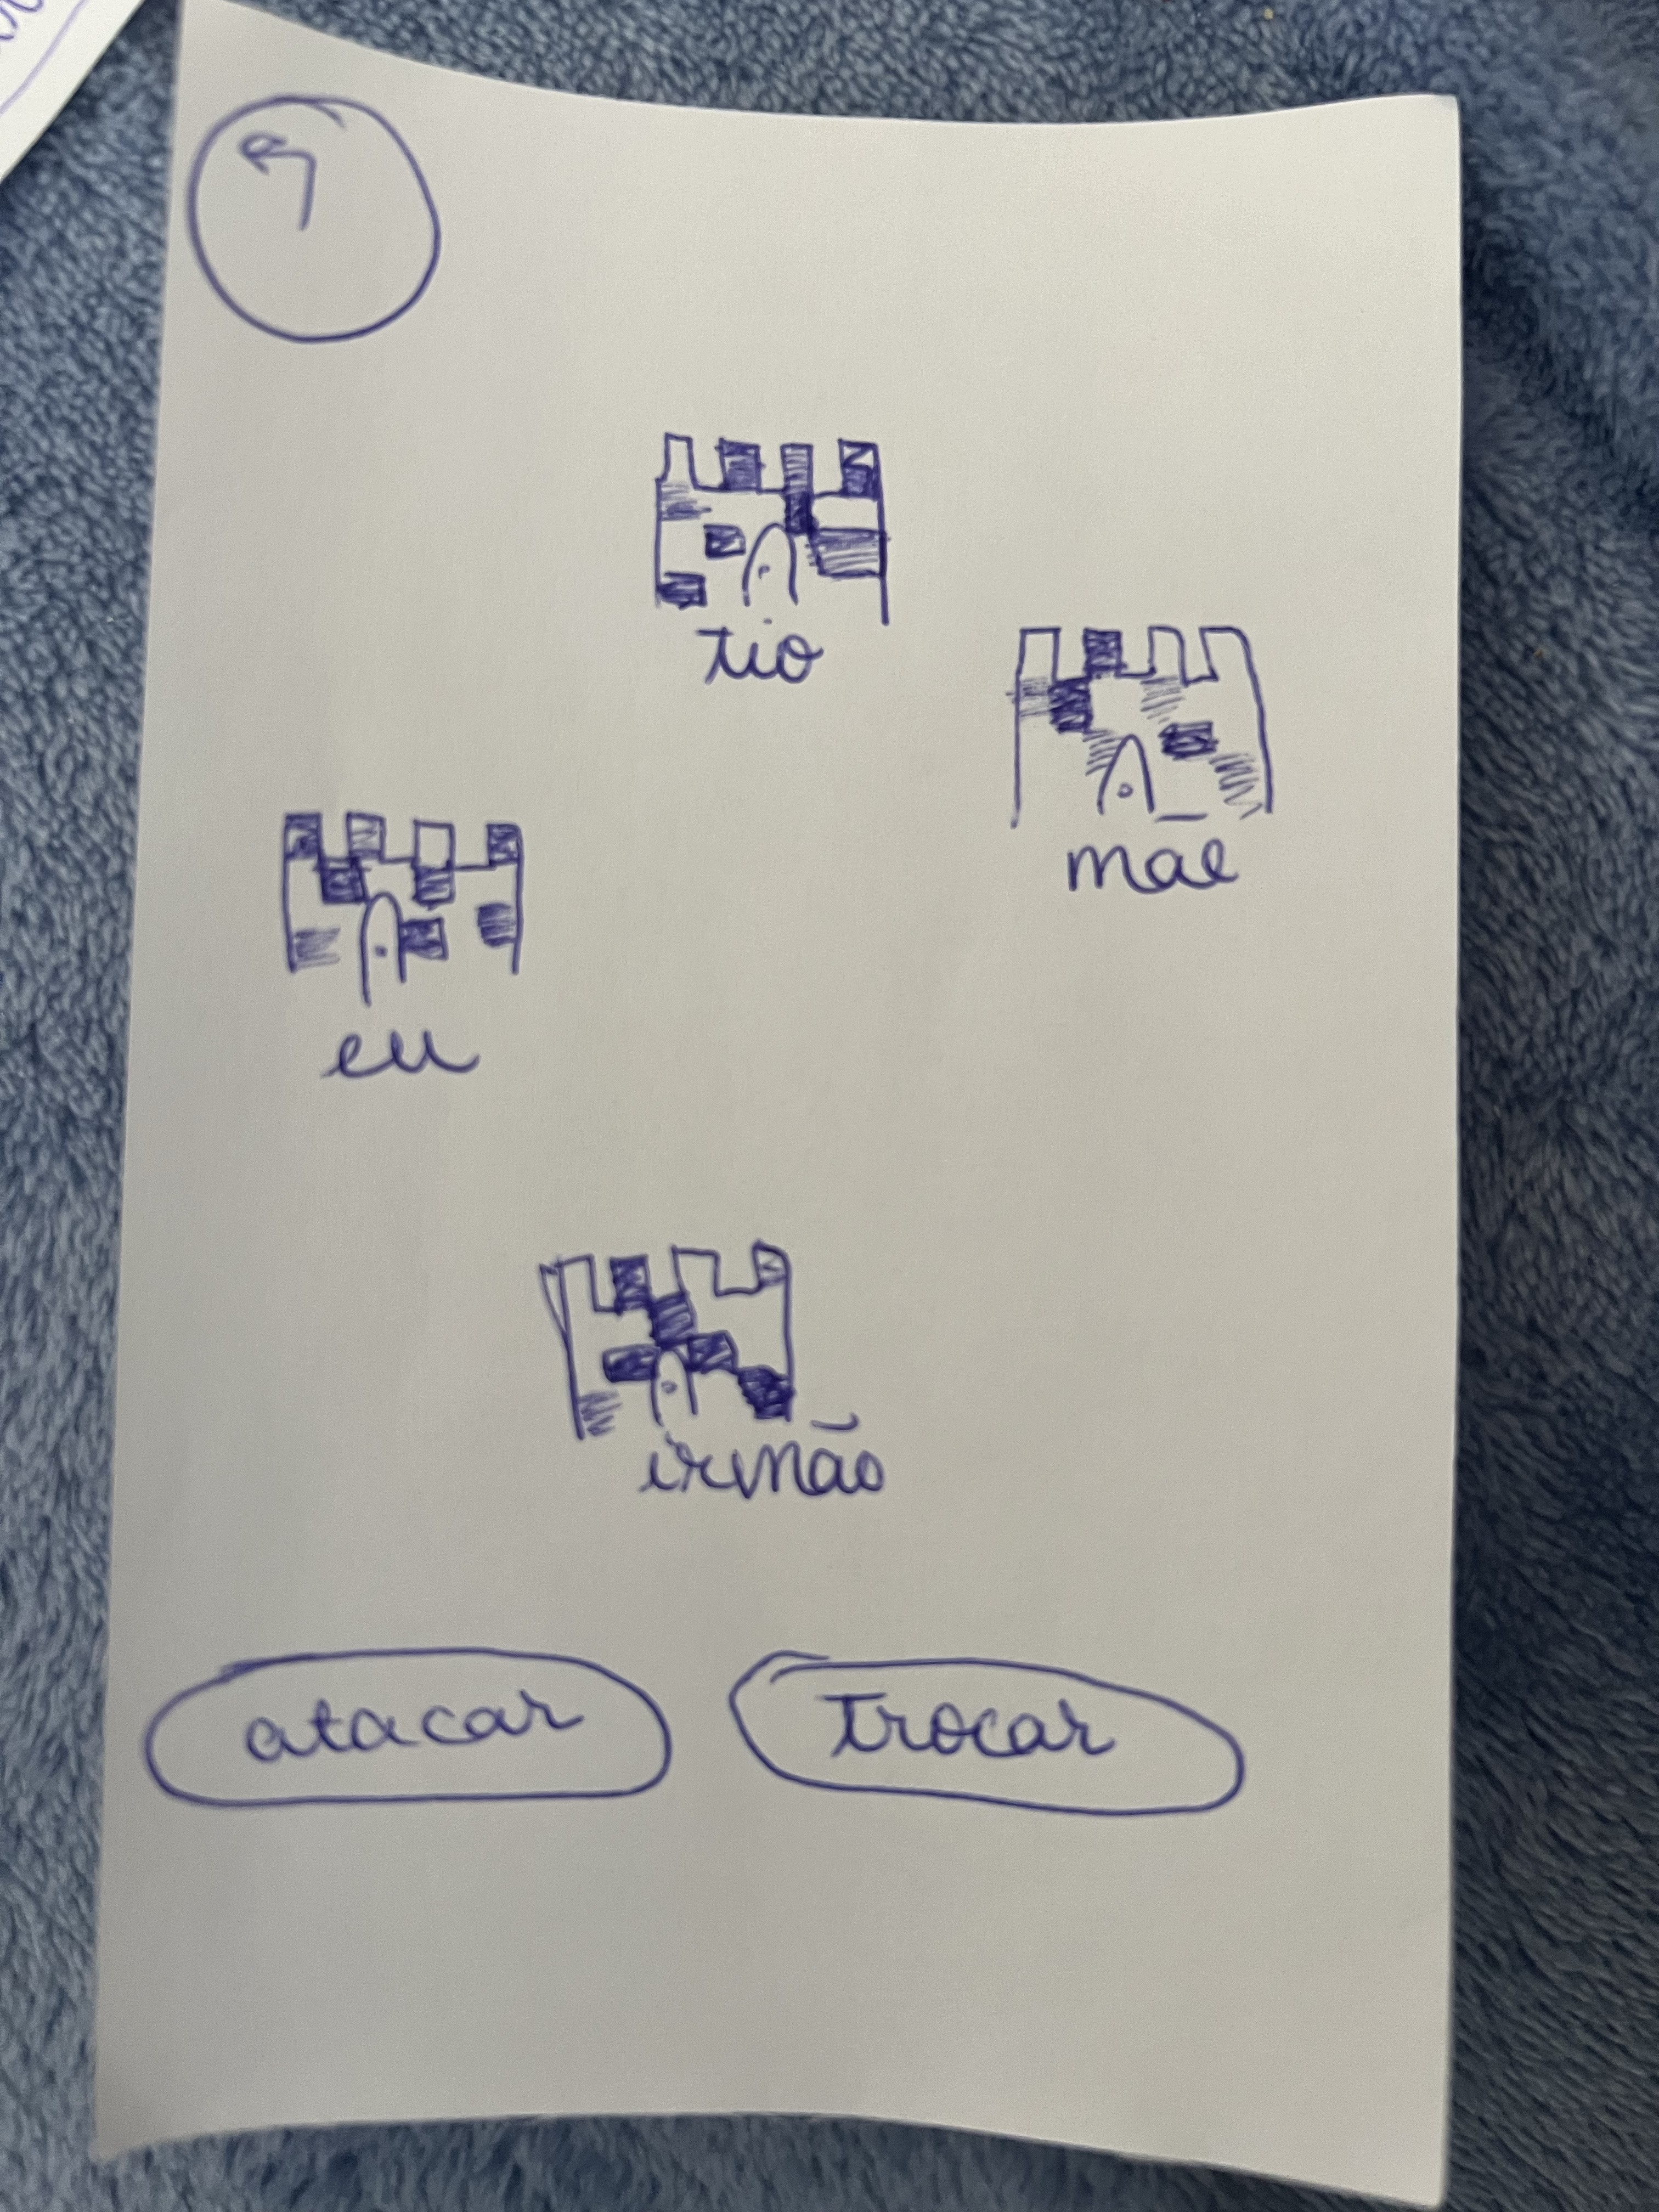 tio
mãe
eu
irmão
atacar
trocar